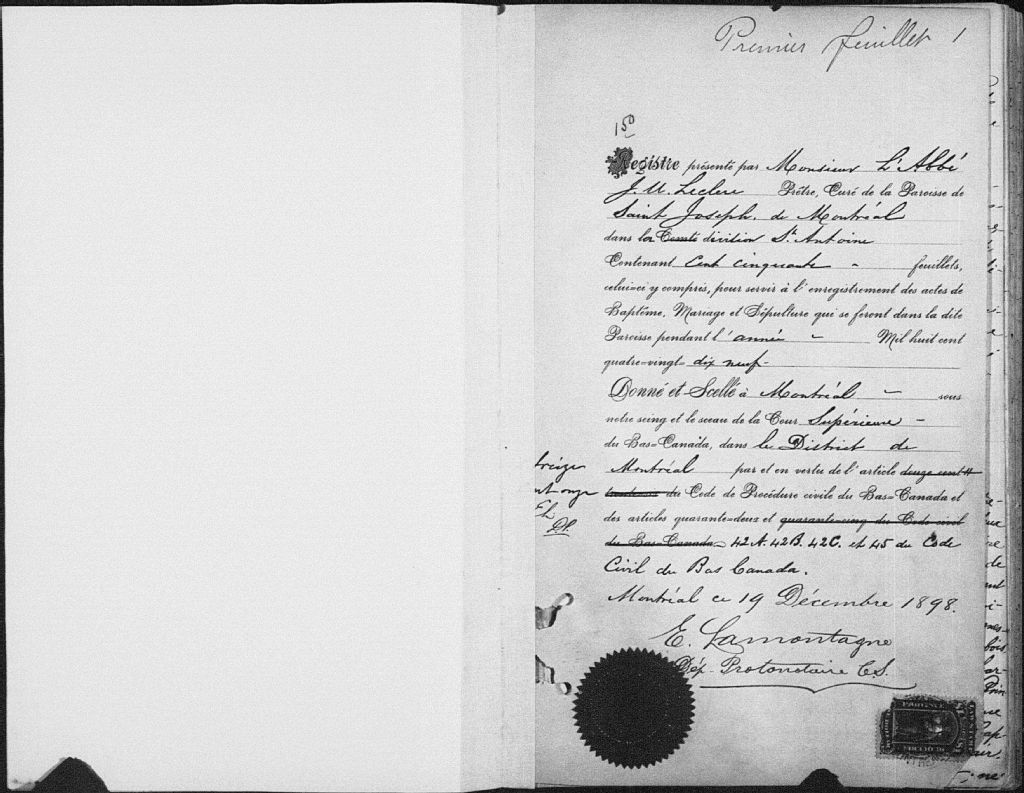 Premier feuillet 1
150
Registre présenté par Monsieur L'Abbé
J. U. Leclerc Prêtre, Curé de la Paroisse de
Saint Joseph. de Montréal
dans la Comté division St. Antoine
Contenant Cent cinquante - feuillets,
celui=ci y compris, pour servir à l'enregistrement des actes de
Baptême, Mariage et Sépulture qui se feront dans la dite
Paroisse pendant l'année - Mil huit cent
quatre=vingt= dix neuf-
Donné et Scellé à Montréal - sous
notre seing et le sceau de la Cour Supérieure -
du Bas=Canada, dans le District de
Montréal par et en vertu de l'article douze cent
du Code de Procédure civile du Bas=Canada et
des articles quarante=deux et quarante=cinq du Code civil
du Bas=Canada 42A. 42B. 42C. et 45 du Code
Civil du Bas Canada.
Montréal ce 19 Décembre 1898.
E. Lamontagne
Dép. Protonotaire C.S.
treize